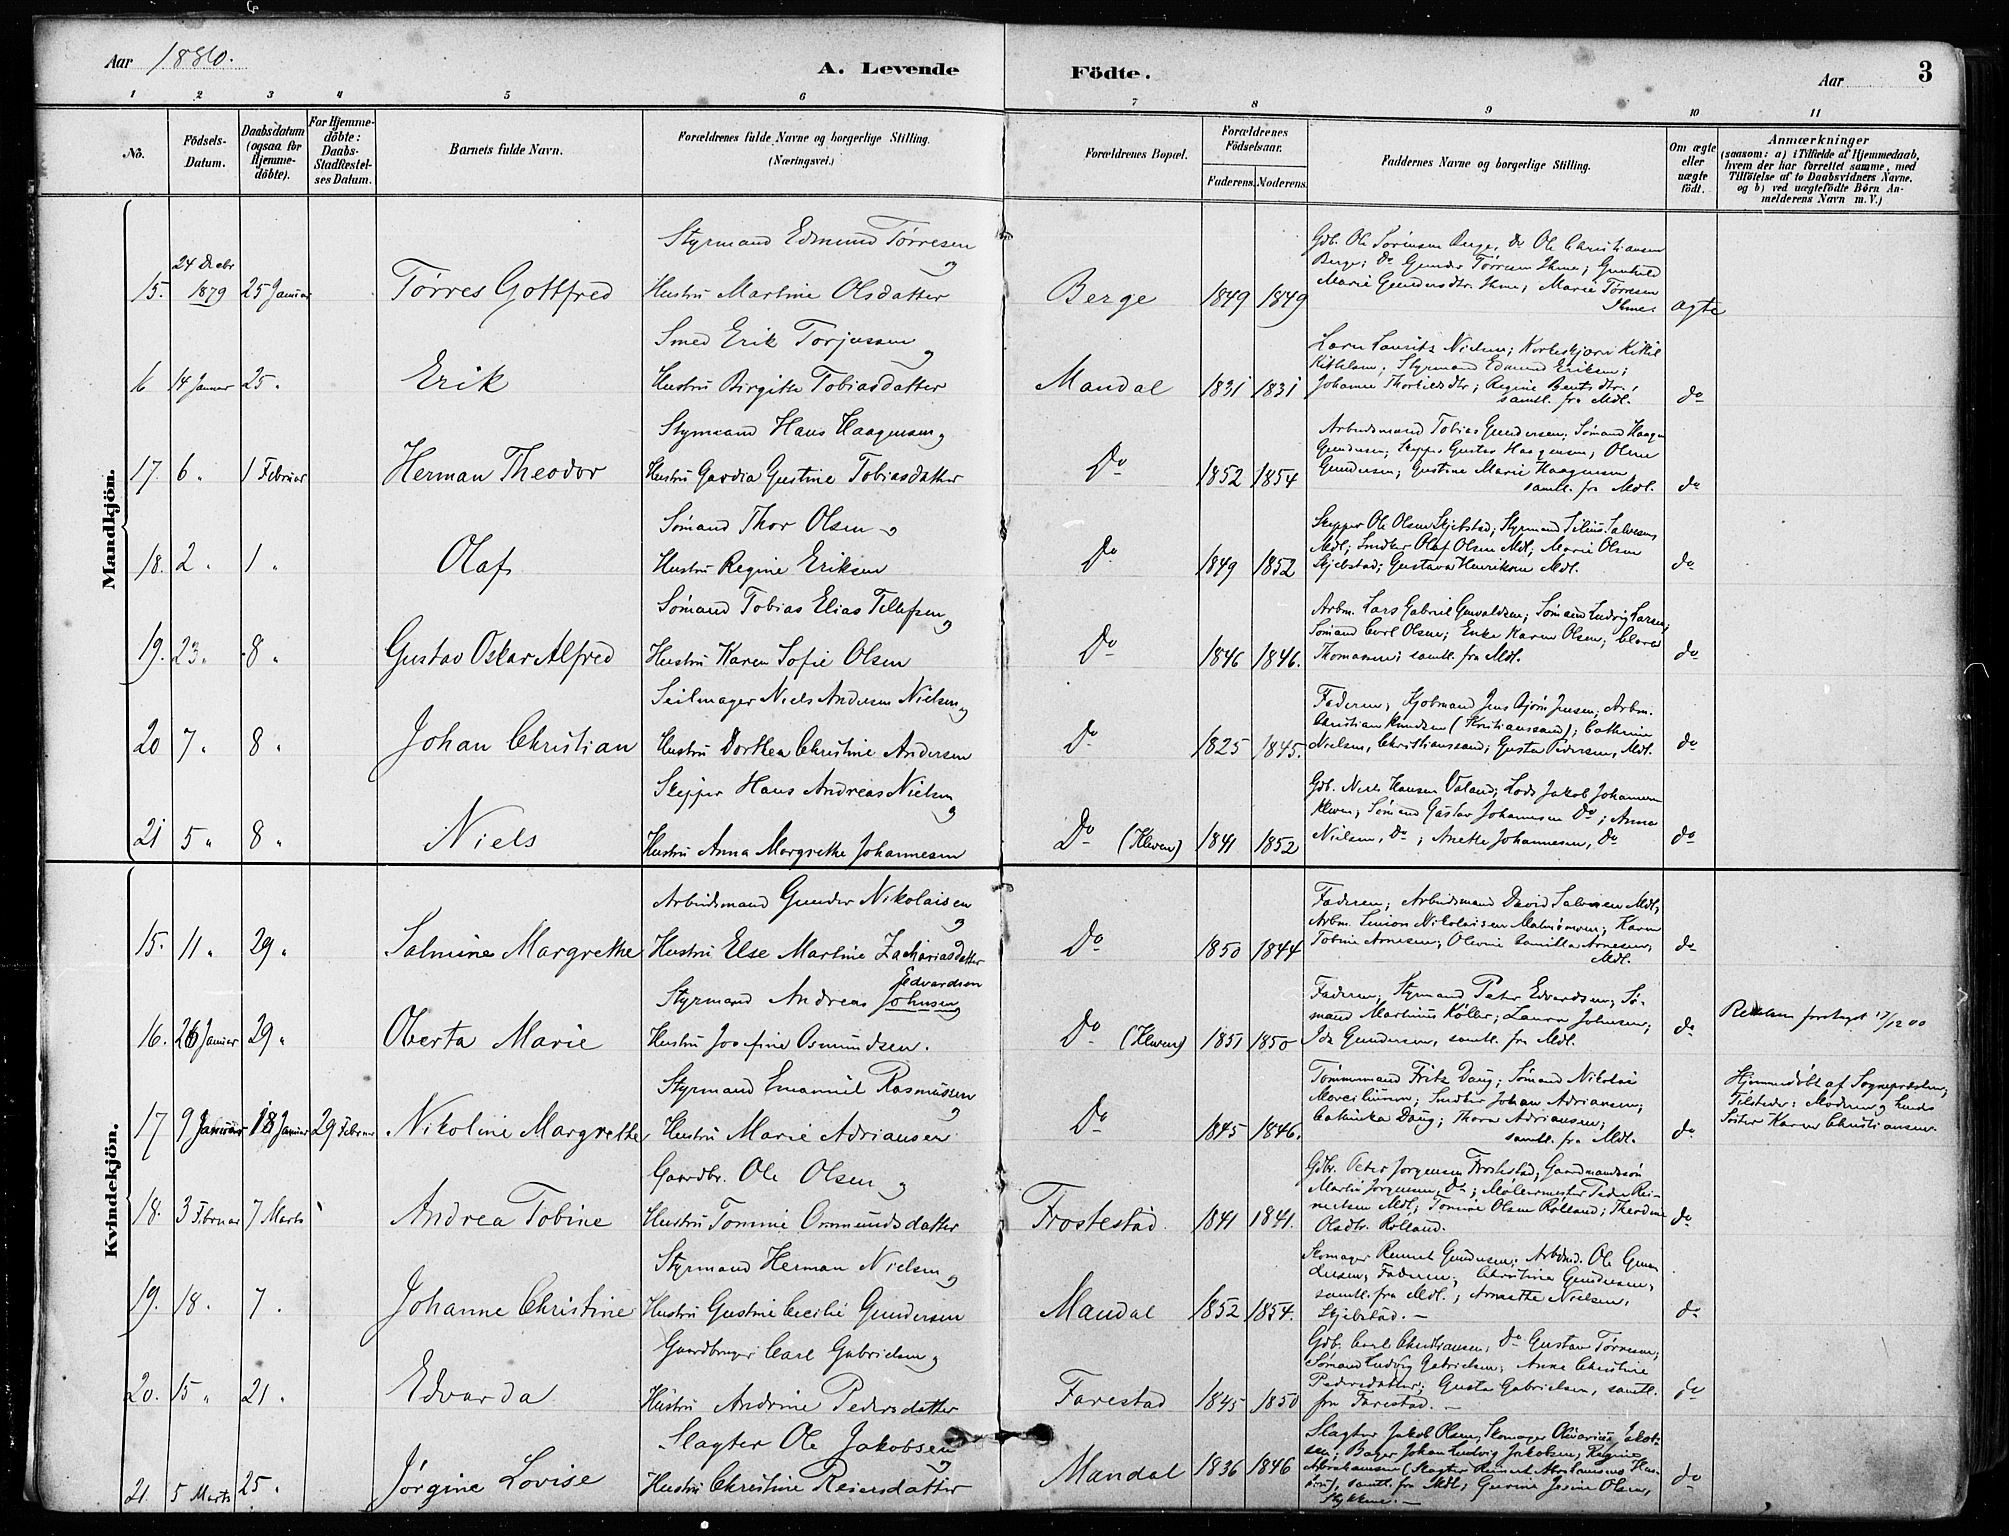 Aar 1880.
A. Levende
Födte.
Aar
3
1 2 3 4 5 6 7 8 9 10 11
No.
Födsels-Datum.
Daabsdatum (ogsaa for Hjemme-döbte).
For Hjemme-döbte: Daabs-Stadfæstel-ses Datum.
Barnets fulde Navn.
Forældrenes fulde Navne og borgerlige Stilling.
(Næringsvei.)
Forældrenes Bopæl.
Forældrenes Födselsaar.
Faderens. Moderens.
Faddernes Navne og borgerlige Stilling.
Om ægte eller uægte födt.
Anmærkninger
(saasom: a) i Tilfælde af Hjemmedaab, hvem der har forrettet samme, med Tilföielse af to Daabsvidners Navne. og b) ved uægtefödte Börn An-melderens Navn m. V.)
Mandkjön.
Styrmand Edmund Tørresen og
15. 24 Decbr 1879 25 Januar Tørres Gottfred Hustru Martine Olsdatter Berge 1849 1849 ægte
Gdb. Ole Sørensen Berge, Do Ole Christiansen
Berge; Do Gunder Tørresen Ihme; Gunhild
Marie Gundersdtr. Ihme, Marie Tørresen
Ihme.
Smed Erik Torjussen og
16 14 Januar 25 " Erik Hustru Birgitte Tobiasdatter Mandal 1831 1831 do
Lauritz Nielsen;
Styrmand Edmund Eriksen;
Johanne; Regine Bentsdtr.;
samtl. fra Mdl.
Styrmand Hans Haagensen og
17. 6 " 1 Februar Herman Theodor Hustru Gustine Tobiasdatter Do 1852 1854 do
Arbeidsmand Tobias Gundersen; Sømand Haagen
Gundersen; Skipper Gustav Haagensen, Oline
Gundersen; Gustine Marie Haagensen,
samtl. fra Mdl.
Sømand Thor Olsen og
18. 2 " 1 " Olaf Hustru Regine Eriksen Do 1849 1852 do
Skipper Ole Olsen Skjebstad; Styrmand Salvesen
Mdl; Snedker Olaf Olsen Mdl; Marie Olsen
Skjebstad; Gustava Henriksen Mdl.
Sømand Tobias Elias Tellefsen og
19. 23 " 8 " Gustav Oskar Alfred Hustru Karen Sofie Olsen Do 1846 1846. do
Arbm. Lars Gabriel; Sømand Ludvig Larsen;
Sømand Carl Olsen; Enke Karen Olsen;
Thomassen; samtl. fra Mdl.
Seilmager Niels Andersen Nielsen og
20 7 " 8 " Johan Christian Hustru Dorthea Christine Andersen Do 1825 1845. do
Faderen, Kjøbmand Jens Jensen; Arbm.
Christian Knudsen (Kristianssand); Cathrine
Nielsen, Christianssand; Gusta Pedersen, Mdl.
Skipper Hans Andreas Nielsen og
21 5 " 8 " Niels Hustru Anna Margrethe Johannesen Do (Kleven) 1841 1852 do
Gdb. Niels Hansen Valand; Lods Jakob Johannesen
Kleven; Sømand Gustav Johannesen Do; Anna
Nielsen, Do; Anette Johannesen, Do
Kvindekjön.
Arbeidsmand Gunder Nikolaisen og
15. 11 " 29 " Salmine Margrethe Hustru Else Martine Zachariasdatter Do 1850 1844 do
Faderen; Arbeidsmand David Salvesen Mdl;
Arbm. Simon Nikolaisen; Karen
Tobine Arnesen; Olevine Camilla Arnesen;
Mdl.
Edvardsen
Styrmand Andreas Johnsen og
16. 26 Januar 29 " Oberta Marie Hustru Josefine Osmundsen. Do (Kleven) 1851 1850 do
Faderen; Styrmand Peter Edvardsen; Sø-
mand Martinus Köller; Laura Johnsen;
Ida Gundersen, samtl. fra Mdl.
17/12 00
Styrmand Emanuel Rasmussen og
17 9 Januar 18 Januar 29 Februar Nikoline Margrethe Hustru Marie Adriansen Do 1845 1846. do
Tømmermand Fritz Daug; Sømand Nikolai
; Snedker Johan Adriansen;
Cathinka Daug; Thora Adriansen;
samtl. fra Mdl.
Hjemmedøbt af Sognepræsten;
Tilstede: Moderen og hendes
Søster Karen Christiansen.
Gaardbr. Ole Olsen og
18. 3 Februar 7 Marts Andrea Tobine Hustru Tomine Ommundsdatter Frostestad 1841 1841. do
Gdbr. Peter Jørgensen Frostestad; Gaardmandssøn
Martin Jørgensen Do; Malermester Peder Rei-
nertsen Mdl; Tomine Olsen Rolland; Theodine
Olsdtr. Rolland.
Styrmand Herman Nielsen og
19. 18. 7. Johanne Christine Hustru Gustine Cecilie Gundersen Mandal 1852 1854. do
Skomager Reinert Gundersen; Arbdmd. Ole Gun-
dersen; Faderen; Christine Gundersen,
samtl. fra Mdl.; Annette Nielsen,
Skjebstad. —
Gaardbruger Carl Gabrielsen og
20. 15 " 21 " Edvarda Hustru Andrine Pedersdatter Farestad 1845 1850 do
Gdb. Carl Christiansen; Do Gustav Tørresen;
Sømand Ludvig Gabrielsen; Anne Christine
Pedersdatter; Gusta Gabrielsen, samtl.
fra Farestad. —
Slagter Ole Jakobsen og
21. 5 Marts 25 " Jørgine Lovise Hustru Christine Reiersdatter Mandal 1836 1846 do
Slagter Jakob Olsen; Skomager Olavius Jakob-
sen; Bager Johan Ludvig Jakobsen; Regine
Abrahamsen (Slagter Reinert Abrahamsens Hus-
tru), samtl. fra Mdl; Jesine Olsen,